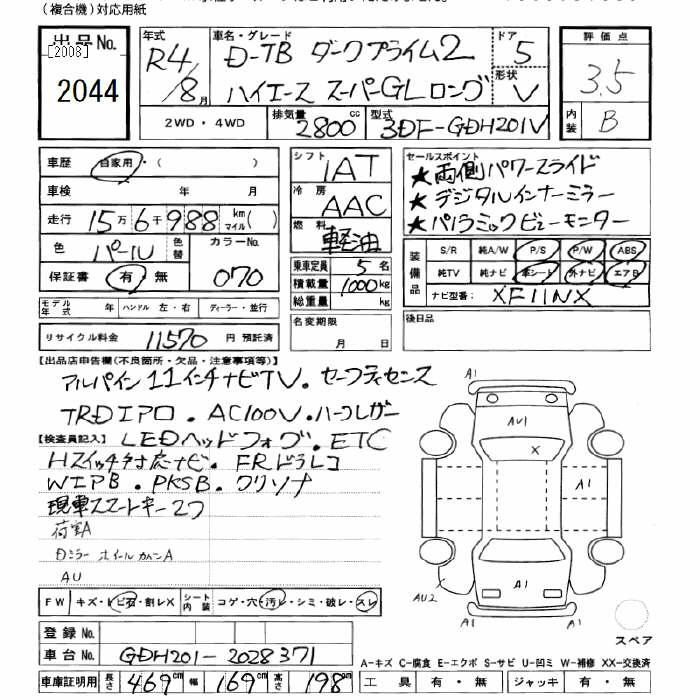 (複合機)対応用紙
出品No.
[2008]
2044
年式 R4/8月
車名・グレード D-TB ダークプライム2
ハイエース スーパーGLロング
ドア 5
形状 V
評価点
3.5
内装 B
2WD・4WD
排気量 2800cc
型式 3DF-GDH201V
車歴 自家用・( )
車検 年 月
走行 15万6千988km マイル( )
色 パール 色替 カラーNo. 070
保証書 有・無
モデル年式 年 ハンドル 左・右 ディーラー・並行
リサイクル料金 11570 円 預託済
シフト IAT
冷房 AAC
燃料 軽油
乗車定員 5名
積載量 1000kg
総重量 kg
名変期限 月 日
セールスポイント
★両側パワースライド
★デジタルインナーミラー
★パノラミックビューモニター
装備品
S/R 純A/W P/S P/W ABS
純TV 純ナビ 革シート 外ナビ エアB
ナビ型番: XF11NX
後日品
【出品店申告欄(不良箇所・欠品・注意事項等)】
アルパイン11インチナビTV. セーフティセンス
TRDエアロ. AC100V.ハーフレザー
【検査員記入】 LEDヘッドフォグ. ETC
Hスイッチ付 広ナビ. FRドラレコ
WIPB. PKSB. クリソナ
現車スマートキー2つ
荷室A
Dミラー ホイールカバーA
AU
FW キズ・ヒ石・割レX シート内装 コゲ・穴・汚レ・シミ・破レ・スレ
登録No.
車台No. GDH201-2028371
車庫証明用 長さ 469cm 幅 169cm 高さ 198cm
A1
AU1
X
A1
A1
AU2
A1
スペア
A-キズ C-腐食 E-エクボ S-サビ U-凹ミ W-補修 XX-交換済
工具 有・無 ジャッキ 有・無